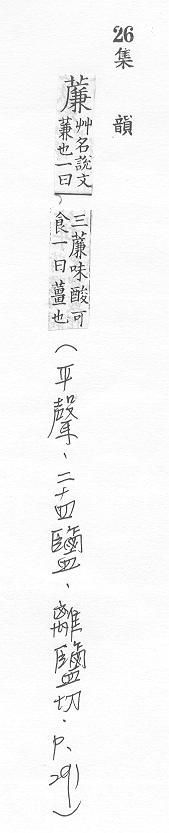 26
集韻
薕艸名說文薕也一曰
三薕味酸可食一曰薑也
(平聲、二十四鹽、離鹽切.P.291)